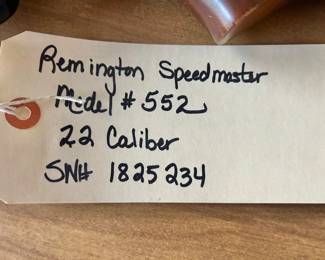 Remington Speedmaster
Model # 552
22 Caliber
SN# 1825234